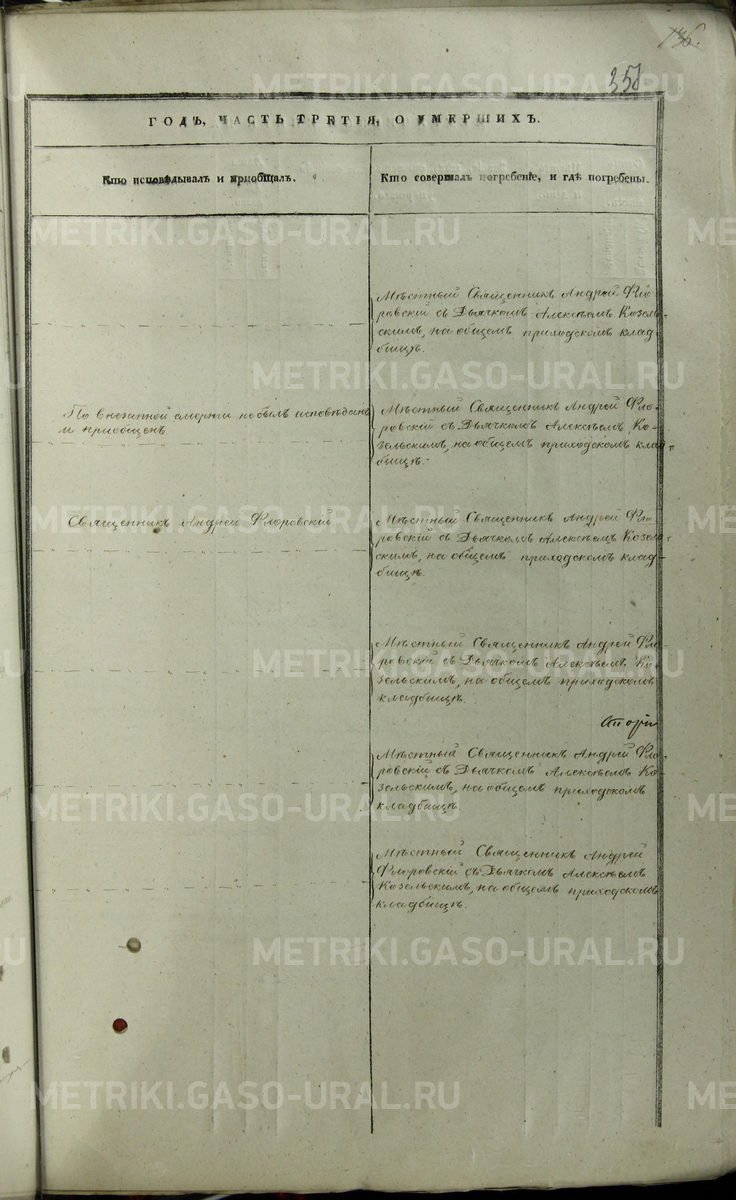 136.
358
METRIKI.GASO-URAL.RU
ГОДЪ, ЧАСТЬ ТРЕТІЯ, О УМЕРШИХЪ.
Кто исповѣдывалъ и пріобщалъ.
Кто совершалъ погребеніе, и гдѣ погребены.
Мѣстный Священникъ Андрей Фло-
ровскій съ Дьячкомъ Алексѣемъ Козель-
скимъ, на общемъ приходскомъ клад-
бищѣ.
По внезапной смерти не былъ исповѣданъ
и пріобщенъ.
Мѣстный Священникъ Андрей Фло-
ровскій съ Дьячкомъ Алексѣемъ Ко-
зельскимъ, на общемъ приходскомъ клад-
бищѣ.
Священникъ Андрей Флоровскій
Мѣстный Священникъ Андрей Фло-
ровскій съ Дьячкомъ Алексѣемъ Козель-
скимъ, на общемъ приходскомъ клад-
бищѣ.
Мѣстный Священникъ Андрей Фло-
ровскій съ Дьячкомъ Алексѣемъ Ко-
зельскимъ, на общемъ приходскомъ
кладбищѣ.
Мѣстный Священникъ Андрей Фло-
ровскій съ Дьячкомъ Алексѣемъ Ко-
зельскимъ, на общемъ приходскомъ
кладбищѣ.
Мѣстный Священникъ Андрей
Флоровскій съ Дьячкомъ Алексѣемъ
Козельскимъ, на общемъ приходскомъ
кладбищѣ.